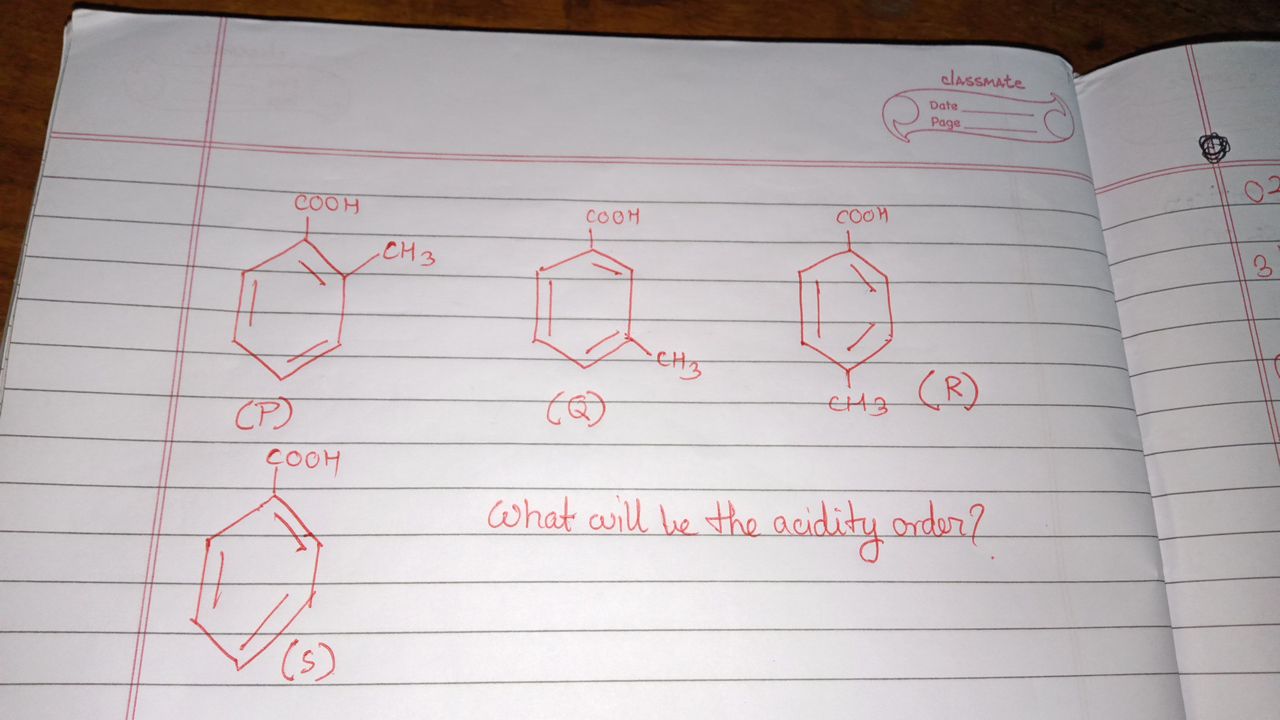 classmate
Date
Page
COOH
CH3
(P)
COOH
CH3
(Q)
COOH
CH3
(R)
COOH
(S)
What will be the acidity order?
02
3